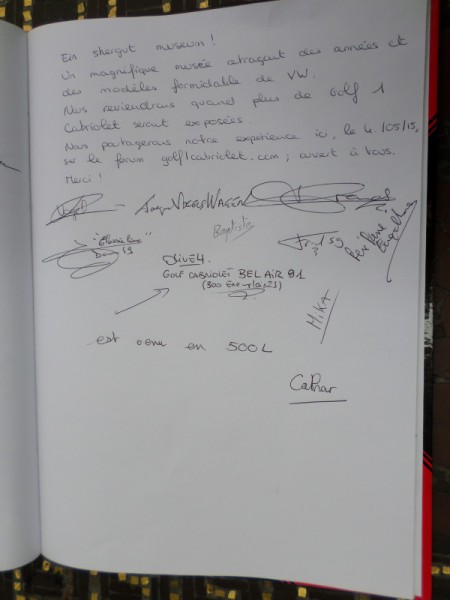 Ein shergut museum !
Un magnifique musée retraçant des années et
des modèles formidable de VW.
Nous reviendrons quand plus de Golf 1
Cabriolet seront exposées.
Nous partagerons notre expérience ici, le 4/05/15,
sur le forum golf1cabriolet.com ; ouvert à tous.
Merci !
Baptiste
59
13
Olive4.
GOLF CABRIOLET BEL AIR 91
(300 Exemplaires)
HIKA
est venu en 500L